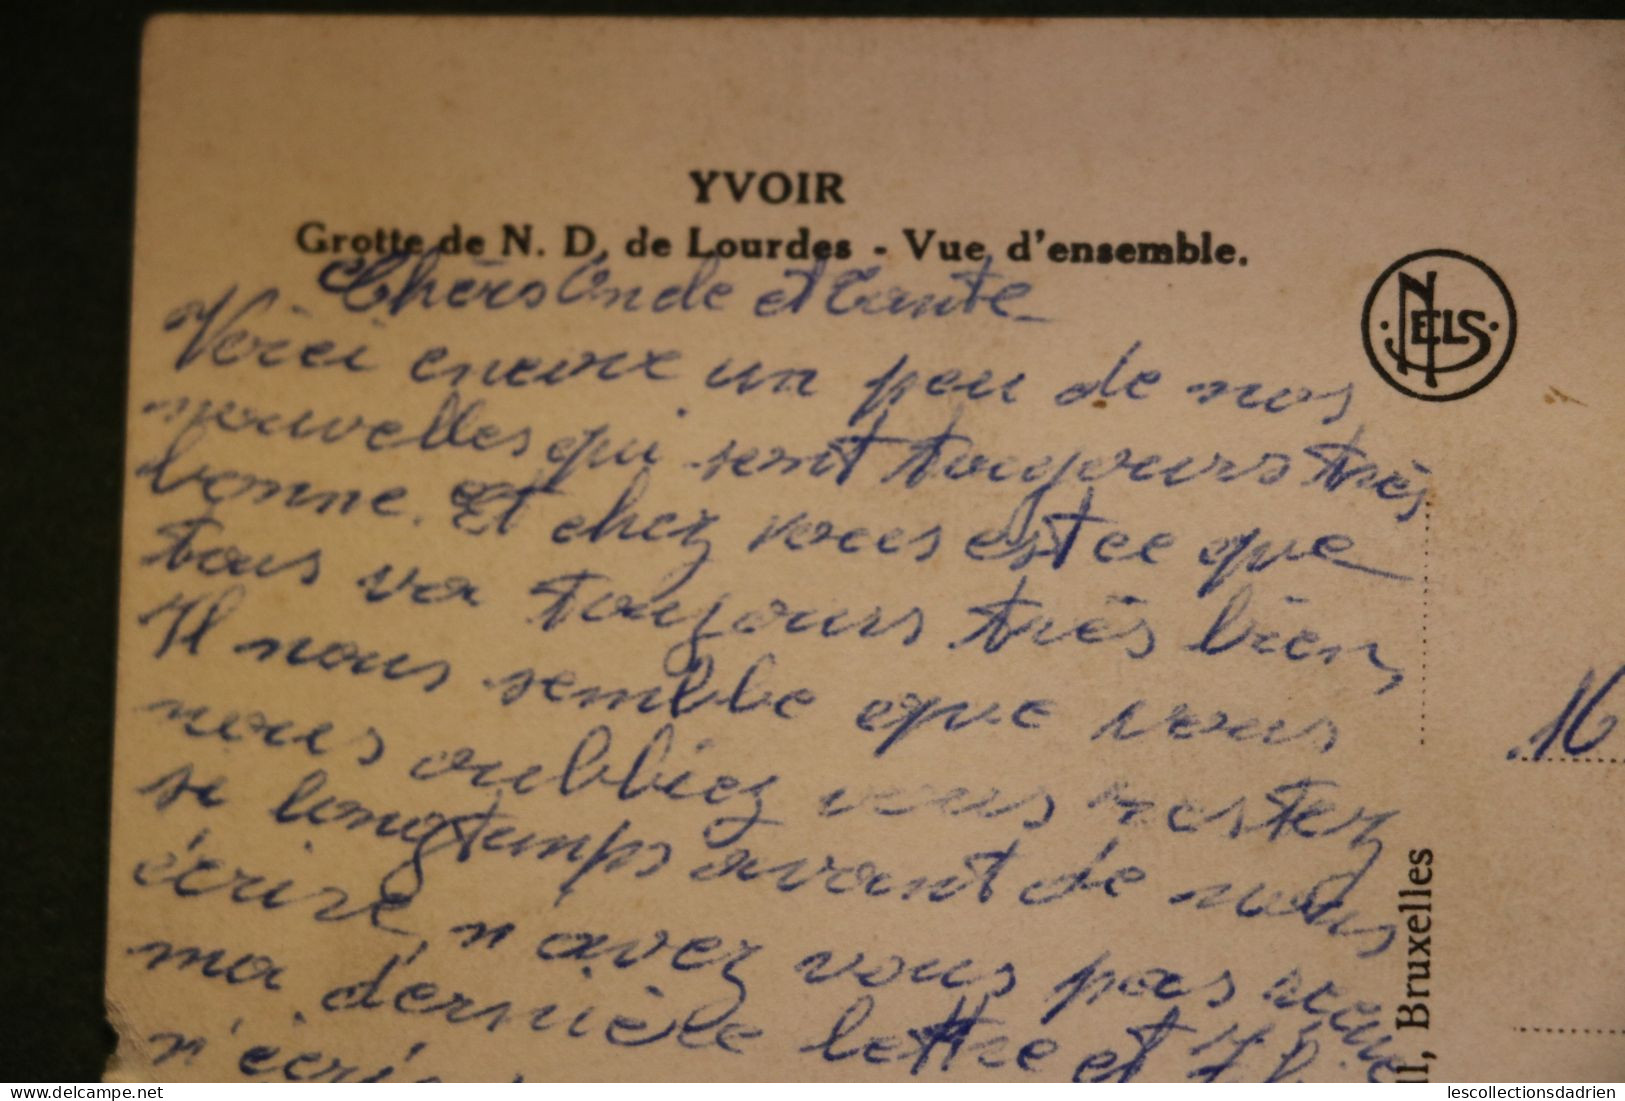 YVOIR
Grotte de N. D. de Lourdes - Vue d'ensemble.
NELS
Chèrs Oncle et Tante
Voici encore un peu de nos
nouvelles qui sont toujours très
bonne. Et chez vous est ce que
tous va toujours très bien,
Il nous semble que vous
nous oubliez vous restez
si longtemps avant de nous
écrire, n'avez vous pas
ma dernière lettre et
16
Bruxelles
lescollectionsdadrien